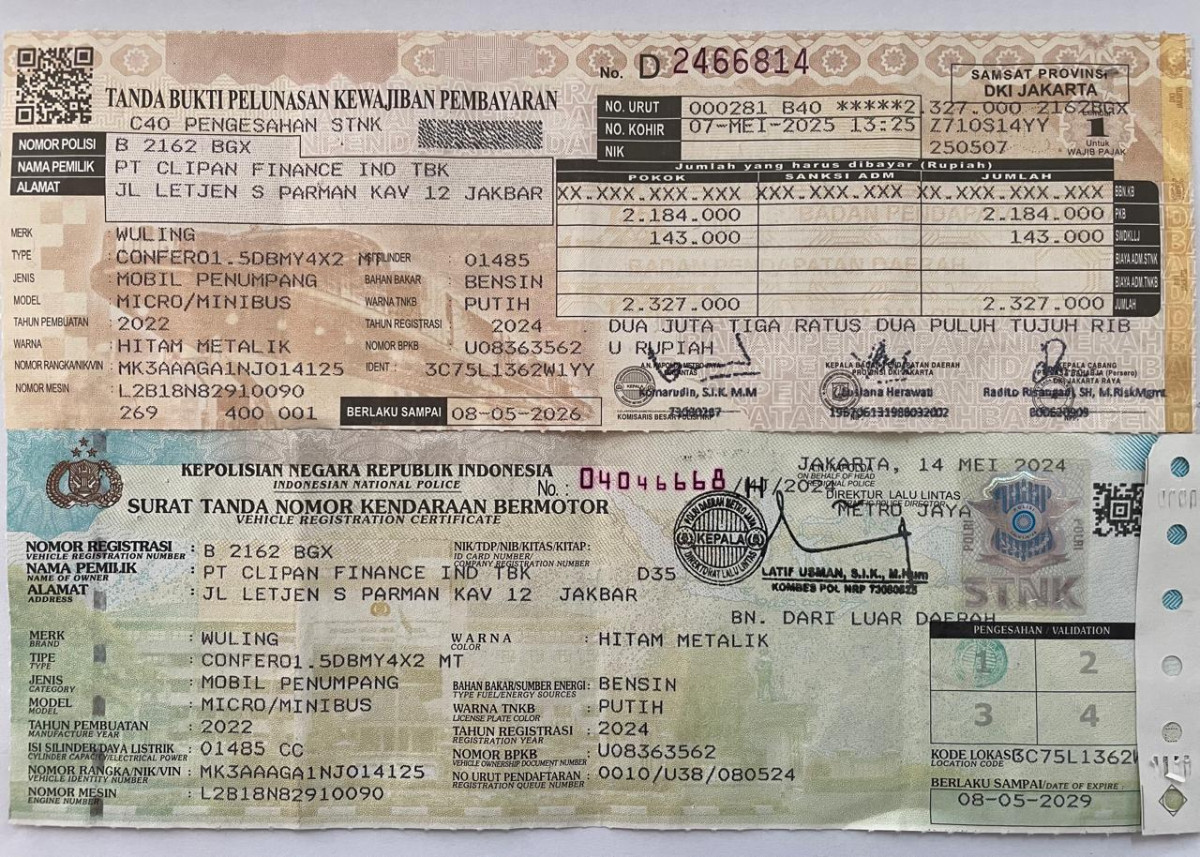 No. D 2466814
SAMSAT PROVINSI
DKI JAKARTA
TANDA BUKTI PELUNASAN KEWAJIBAN PEMBAYARAN
C40 PENGESAHAN STNK
NO. URUT 000281 B40 *****2.327.000 2162BGX
NO. KOHIR 07-MEI-2025 13:25 Z710S14YY
NIK 250507
1
Untuk
WAJIB PAJAK
NOMOR POLISI B 2162 BGX
NAMA PEMILIK PT CLIPAN FINANCE IND TBK
ALAMAT JL LETJEN S PARMAN KAV 12 JAKBAR
Jumlah yang harus dibayar (Rupiah)
POKOK SANKSI ADM JUMLAH
XX.XXX.XXX.XXX XX.XXX.XXX.XXX XX.XXX.XXX.XXX BBN.KB
2.184.000 2.184.000 PKB
143.000 143.000 SWDKLLJ
BIAYA ADM.STNK
BIAYA ADM.TNKB
2.327.000 2.327.000 JUMLAH
MERK : WULING
TYPE : CONFERO1.5DBMY4X2 MT : 01485
JENIS : MOBIL PENUMPANG BAHAN BAKAR : BENSIN
MODEL : MICRO/MINIBUS WARNA TNKB : PUTIH
TAHUN PEMBUATAN : 2022 TAHUN REGISTRASI : 2024
WARNA : HITAM METALIK NOMOR BPKB : U08363562
NOMOR RANGKA/NIK/VIN : MK3AAAGA1NJ014125 IDENT : 3C75L1362W1YY
NOMOR MESIN : L2B18N82910090
269 400 001 BERLAKU SAMPAI 08-05-2026
DUA JUTA TIGA RATUS DUA PULUH TUJUH RIB
U RUPIAH
KEPALA CABANG
DKI JAKARTA RAYA
Komarudin, S.I.K, M.M
Herawati
Radito Risangadi, SH, M.RiskMgmt
196706131988032002
KEPOLISIAN NEGARA REPUBLIK INDONESIA
INDONESIAN NATIONAL POLICE
No. : 04046668
SURAT TANDA NOMOR KENDARAAN BERMOTOR
VEHICLE REGISTRATION CERTIFICATE
JAKARTA, 14 MEI 2024
ON BEHALF OF HEAD
DIREKTUR LALU LINTAS
METRO JAYA
KEPALA
LATIF USMAN, S.I.K., M.Hum
KOMBES POL NRP 73080625
POLRI
POLRI
STNK
NOMOR REGISTRASI : B 2162 BGX
VEHICLE REGISTRATION NUMBER
NIK/TDP/NIB/KITAS/KITAP:
ID CARD NUMBER/
COMPANY REGISTRATION NUMBER
NAMA PEMILIK : PT CLIPAN FINANCE IND TBK D35
NAME OF OWNER
ALAMAT : JL LETJEN S PARMAN KAV 12 JAKBAR
ADDRESS
BN. DARI LUAR DAERAH
MERK : WULING
BRAND
WARNA : HITAM METALIK
COLOR
TIPE : CONFERO1.5DBMY4X2 MT
TYPE
JENIS : MOBIL PENUMPANG
CATEGORY
BAHAN BAKAR/SUMBER ENERGI : BENSIN
TYPE FUEL/ENERGY SOURCES
MODEL : MICRO/MINIBUS
MODEL
WARNA TNKB : PUTIH
LICENSE PLATE COLOR
TAHUN PEMBUATAN : 2022
MANUFACTURE YEAR
TAHUN REGISTRASI : 2024
REGISTRATION YEAR
ISI SILINDER/DAYA LISTRIK : 01485 CC
CYLINDER CAPACITY/ELECTRICAL POWER
NOMOR BPKB : U08363562
VEHICLE OWNERSHIP DOCUMENT NUMBER
NOMOR RANGKA/NIK/VIN : MK3AAAGA1NJ014125
VEHICLE IDENTITY NUMBER
NO URUT PENDAFTARAN : 0010/U38/080524
REGISTRATION QUEUE NUMBER
NOMOR MESIN : L2B18N82910090
ENGINE NUMBER
PENGESAHAN / VALIDATION
1 2
3 4
KODE LOKASI 3C75L1362W
LOCATION CODE
BERLAKU SAMPAI/DATE OF EXPIRE :
08-05-2029